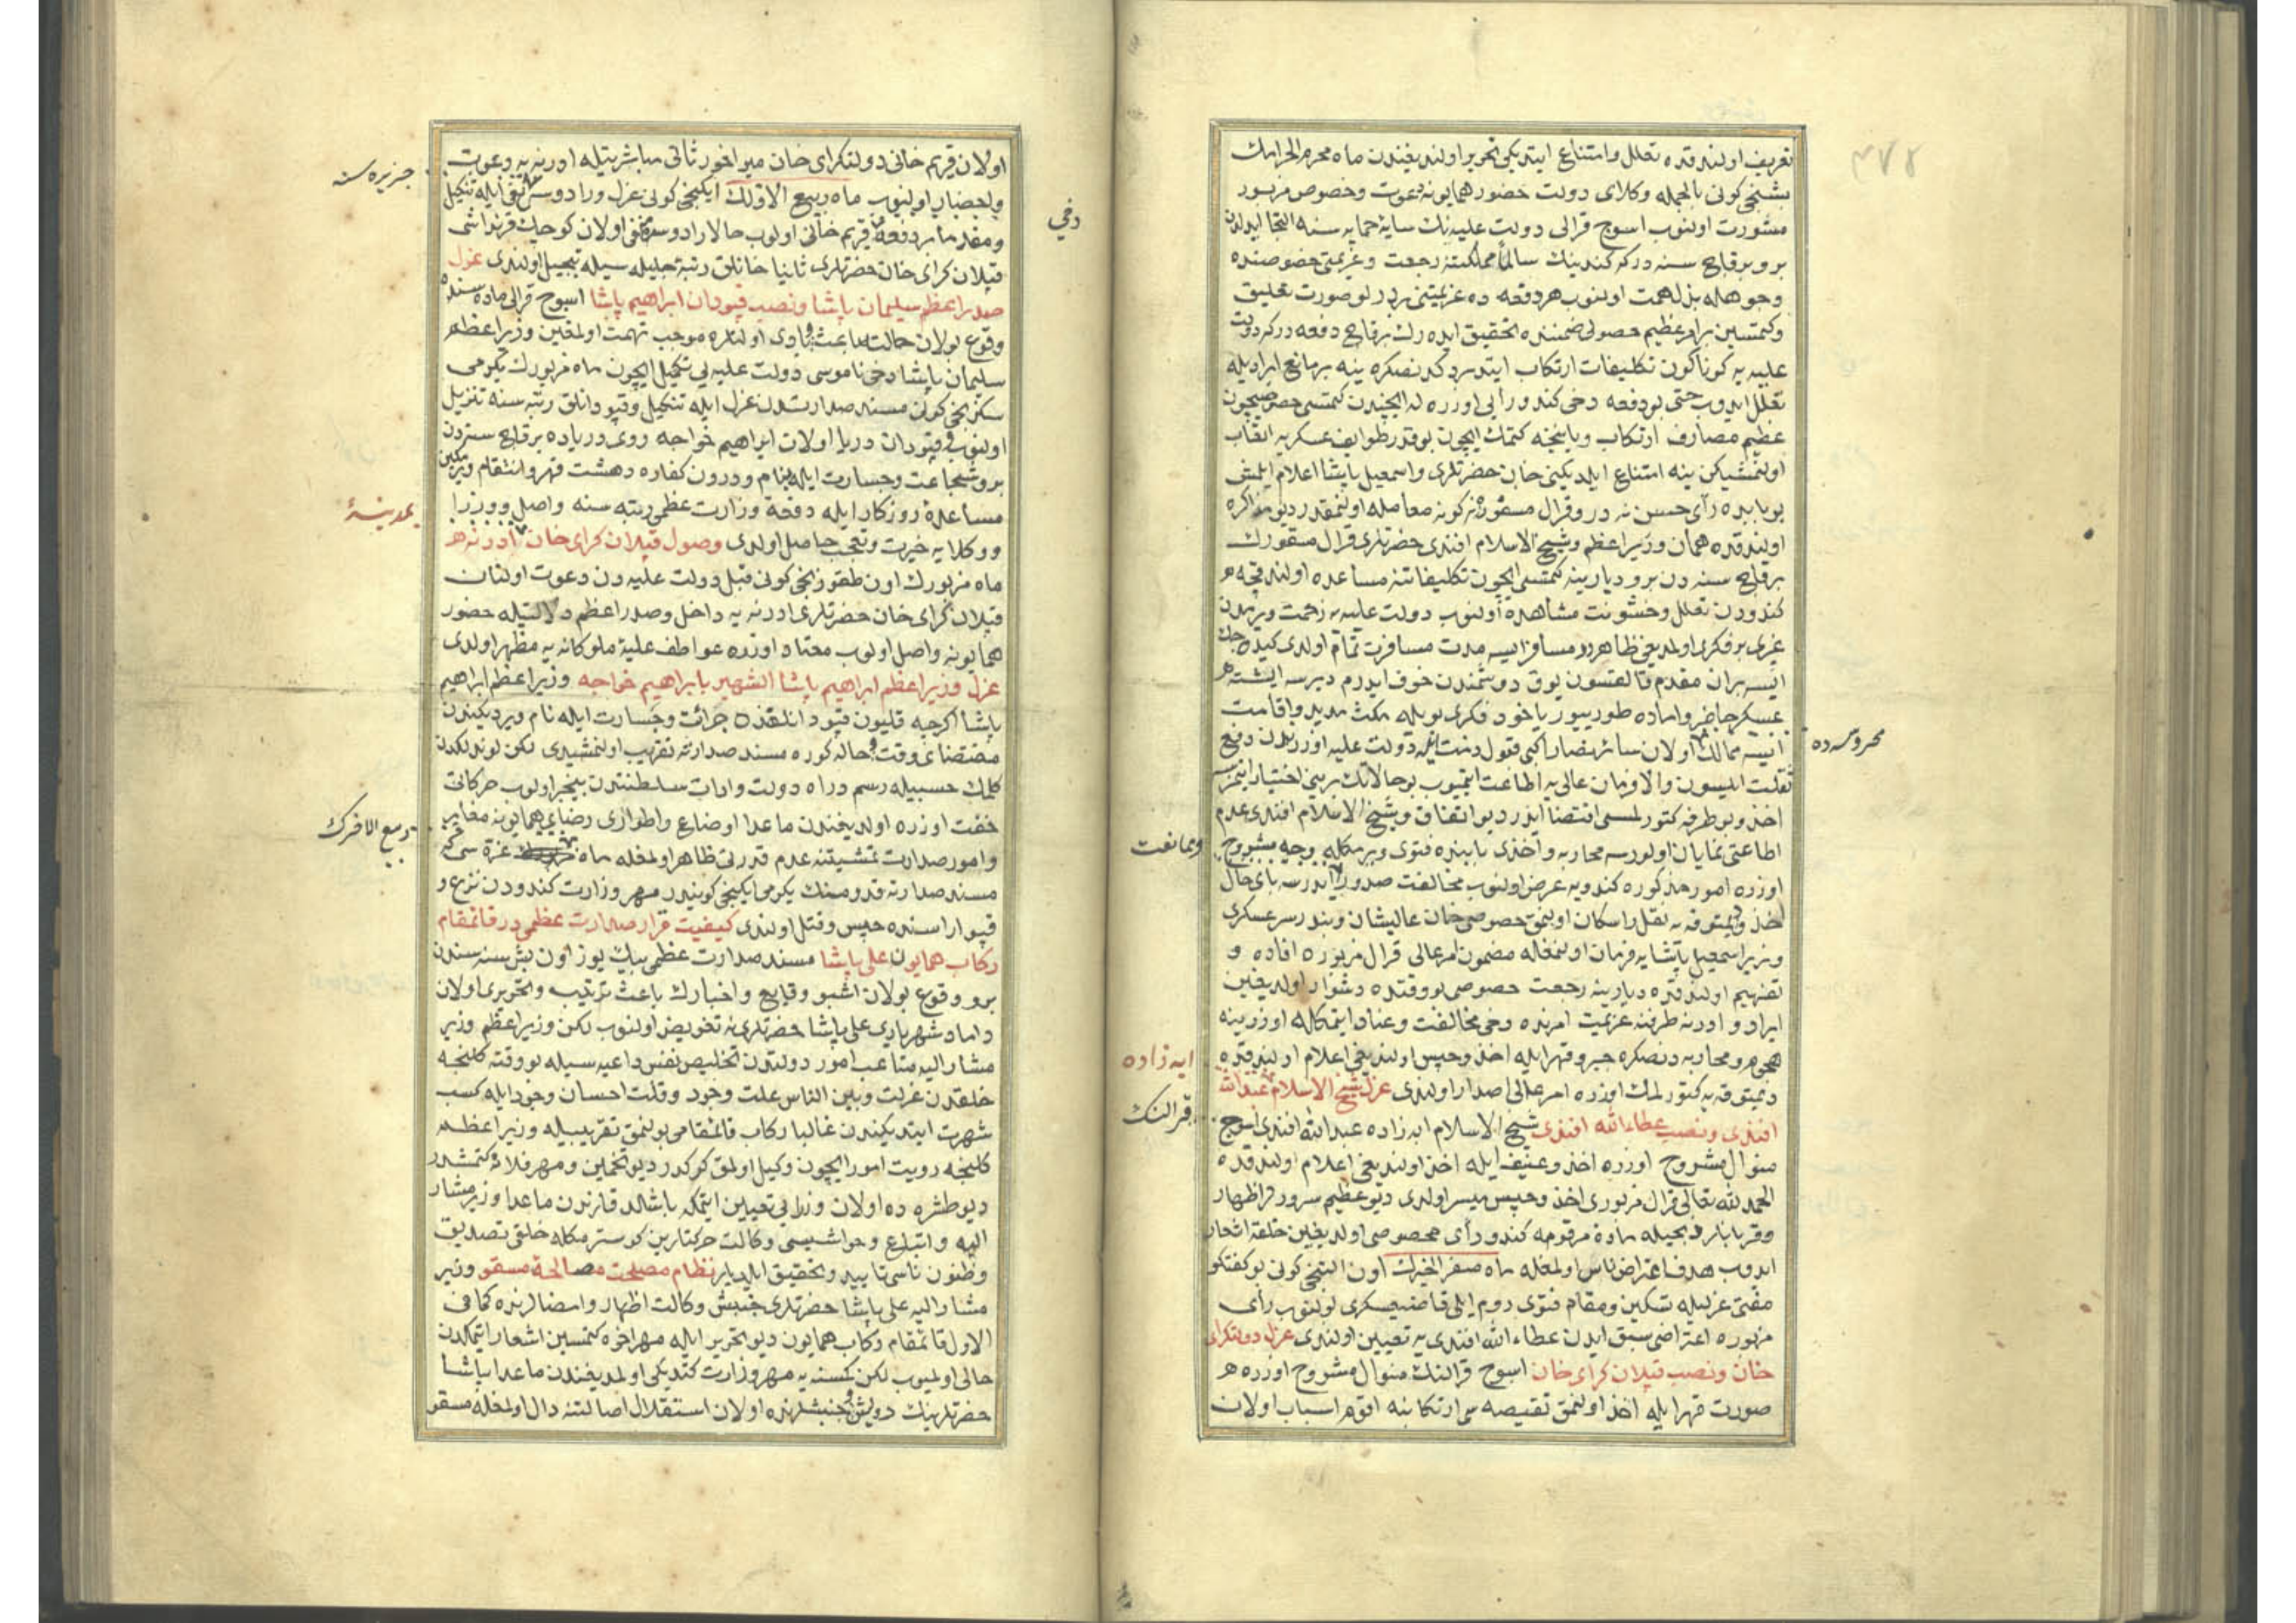 ٤٧٨
تعریف اولندقده تعلل وامتناع ایتدیکی تحریر اولندیغندن ماه محرم الحرامك
بشنجی کونی بالجمله وکلای دولت حضور همایونه دعوت وخصوص مزبور
مشورت اولنوب اسوج قرالی دولت علیه نك سایهٔ حمایه سنه التجا ایدلدن
برو برقاچ سنه در که کندینك سالماً مملکتنه رجعت وعزیمتی خصوصنده
وجوهله بذل همت اولنوب هر دفعه ده عزیمتنی بر در لو صورت تعلیق
وکیتمسین بر امر عظیم حصولی ضمننده تحقیق ایده رك برقاچ دفعه در که دولت
علیه یه کوناکون تکلیفات ارتکاب ایتدیردکدنصکره ینه بر مانع ایرادیله
تعلل ایدوب حتی بو دفعه دخی کندو رأیی اوزره له ایچیندن کیتمسی خصوصیچون
عظیم مصارف ارتکاب وبالنتیجه کیتمك ایچون بو قدر طوایف عسکریه اتعاب
اولنمشیکن ینه امتناع ایلدیکنی خان حضرتلری واسمعیل پاشا اعلام ایلمش
بو بابده رأی حسن نه در وقرال مسفوره نه کونه معامله اولنمقدر دیو مذاکره
اولندقده همان وزیر اعظم وشیخ الاسلام افندی حضرتلری قرال منفورك
برقاچ سنه دن برو دیارینه کیتمسی ایچون تکلیفاتنه مساعده اولندقجه
کندودن تعلل وخشونت مشاهده اولنوب دولت علیه یه زحمت ویرمدن
غیری بر فکری اولمدیغی ظاهر در مسافر ایسه مدت مسافرت تمام اولدی کیده جك
ایسه بران مقدم قالقسون یوق دوشمندن خوف ایدرم دیرسه ایشته
عسکر حاضر واماده طورییور یاخود فکری بویله مکث مدید واقامت
ایسه ممالك اولان سائر نصارا کبی قبول ذمت ایله دولت علیه اوزرندن دفع
محروسه ده
ثقلت ایلیسون والا فرمان عالی یه اطاعت ایتمیوب بو حالاتك برینی اختیار ایتمزسه
اخذ وبو طرفه کتورلمسی اقتضا ایدر دیو اتفاق وشیخ الاسلام افندی عدم
اطاعتی نمایان اولورسه محاربه واخذی بابنده فتوی ویرمکله وجه مشروح
وممانعت
اوزره امور مذکوره کندویه عرض اولنوب مخالفت صدور ایدرسه بای حال
اخذ ودیمتوقه یه نقل واسکان اولنمق خصوصی خان عالیشان وبندر سرعسکری
وزیر اسمعیل پاشایه فرمان اولنمغله مضمون امر عالی قرال مزبوره افاده و
تفهیم اولندقده دیارینه رجعت خصوصی بو وقتده دشوار اولدیغین
ایراد وادرنه طرفنه عزیمت امرنده دخی مخالفت وعناد ایتمکله اوزرینه
هجوم ومحاربه دنصکره جبر وقهر ایله اخذ وحبس اولندیغی اعلام اولندقده
دیمتوقه یه کتورلمك اوزره امر عالی اصدار اولندی عزل شیخ الاسلام عبدالله
ابه زاده
افندی ونصب عطاءالله افندی شیخ الاسلام ابه زاده عبدالله افندی اسوج
قرالنك
منوال مشروح اوزره اخذ وعنیف ایله اخذ اولندیغی اعلام اولندقده
الحمد لله تعالی قرال مزبوری اخذ وحبس میسر اولدی دیو عظیم سرور اظهار
وقربانلر ذبحیله مادهٔ مرقومه کندو رأی مخصوصی اولدیغین خلقه اشعار
ایدوب هدف اعتراض ناس اولمغله ماه صفر الخیرك اون التنجی کونی بو کفتکو
مفتی عزلیله تسکین ومقام فتوی روم ایلی قاضیعسکری بولنوب رأی
مزبوره اعتراضی سبق ایدن عطاءالله افندی یه تعیین اولندی عزل دولتکرای
خان ونصب قپلان کرای خان اسوج قرالنك منوال مشروح اوزره
صورت قهر ایله اخذ اولنمق نقیصه سی ارتکابنه اقوم اسباب اولان
اولان قریم خانی دولتکرای خان میراخور ثانی مباشرتیله ادرنه یه دعوت
واحضار اولنوب ماه ربیع الاولك ایکنجی کونی عزل ورادوسه نفی ایله تنکیل
جزیره سنه
ومقدما بر دفعه قریم خانی اولوب حالا رادوسه منفی اولان کوچك قرنداشی
دخی
قپلان کرای خان حضرتلری ثانیا خانلق رتبهٔ جلیله سیله تبجیل اولندی عزل
صدر اعظم سلیمان پاشا ونصب قپودان ابراهیم پاشا اسوج قرالی ماده سنده
وقوع بولان حالت باعث وبادی اولنلره موجب تهمت اولمغین وزیر اعظم
سلیمان پاشا دخی ناموسی دولت علیه یی تکمیل ایچون ماه مزبورك یکرمی
سکزنجی کونی مسند صدارتدن عزل ایله تنکیل وقپودانلق رتبه سنه تنزیل
اولنوب قپودان دریا اولان ابراهیم خواجه روی دریاده برقاچ سنه دن
برو شجاعت وجسارت ایله بنام ودرون کفاره دهشت قهر وانتقام ویرمکین
مساعدهٔ روزکار ایله دفعة وزارت عظمی رتبه سنه واصل ووزرا
ووکلایه حیرت وتعجب حاصل اولدی وصول قپلان کرای خان ادرنه
بمدینهٔ
ماه مزبورك اون طقوزنجی کونی قبل دولت علیه دن دعوت اولنان
قپلان کرای خان حضرتلری ادرنه یه داخل وصدر اعظم دلالتیله حضور
همایونه واصل اولوب معتاد اوزره عواطف علیهٔ ملوکانه یه مظهر اولدی
عزل وزیر اعظم ابراهیم پاشا الشهیر بابراهیم خواجه وزیر اعظم ابراهیم
پاشا اکرچه قلیون قپودانلقنده جرائت وجسارت ایله نام ویردیکندن
مقتضای وقت وحاله کوره مسند صدارته تقریب اولنمشیدی لکن لوندلکدن
کلمك حسبیله رسم وراه دولت واداب سلطنتدن بیخبر اولوب حرکاتی
خفت اوزره اولدیغندن ماعدا اوضاع واطواری رضای همایونه مغایر
وامور صدارت تمشیتنه عدم قدرتی ظاهر اولمغله ماه غره سی که
ربیع الاخرك
مسند صدارته قدومینك یکرمی ایکنجی کونیدر مهر وزارت کندودن نزع و
قپو اراسنده حبس وقتل اولندی کیفیت قرار صدارت عظمی در قائمقام
رکاب همایون علی پاشا مسند صدارت عظمی بیك یوز اون بش سنه سندن
برو وقوع بولان اشبو وقایع واخبارك باعث ترتیب وتحریری اولان
داماد شهریاری علی پاشا حضرتلرینه تفویض اولنوب لکن وزیر اعظم وزیر
مشار الیه متاعب امور دولتدن تخلیص نفس داعیه سیله بو وقته کلنجه
خلقدن عزلت وبین الناس علت وجود وقلت احسان وجود ایله کسب
شهرت ایتدیکندن غالبا رکاب قائمقامی بولنمق تقریبیله وزیر اعظم
کلنجه رویت امور ایچون وکیل اولمق کرکدر دیو تخمین ومهر فلانه کیتمشدر
دیو طشره ده اولان وزرایی تعیین ایتمکه باشلدقلرندن ماعدا وزیر مشار
الیه واتباع وحواشیسی وکالت حرکتلرین کوسترمکله خلقی تصدیق
وظنون ناسی تایید وتحقیق ایلدیلر نظام مصلحت مصالحهٔ مسقو وزیر
مشار الیه علی پاشا حضرتلری جنبش وکالت اظهار وامضالرنده کما فی
الاول قائمقام رکاب همایون دیو تحریر ایله مهر اخره کیتمسین اشعار ایتمکدن
خالی اولمیوب لکن کمسنه یه مهر وزارت کتدیکی اولمدیغندن ماعدا پاشا
حضرتلرینك روش وجنبشلرنده اولان استقلال اصالتنه دال اولمغله مسقو